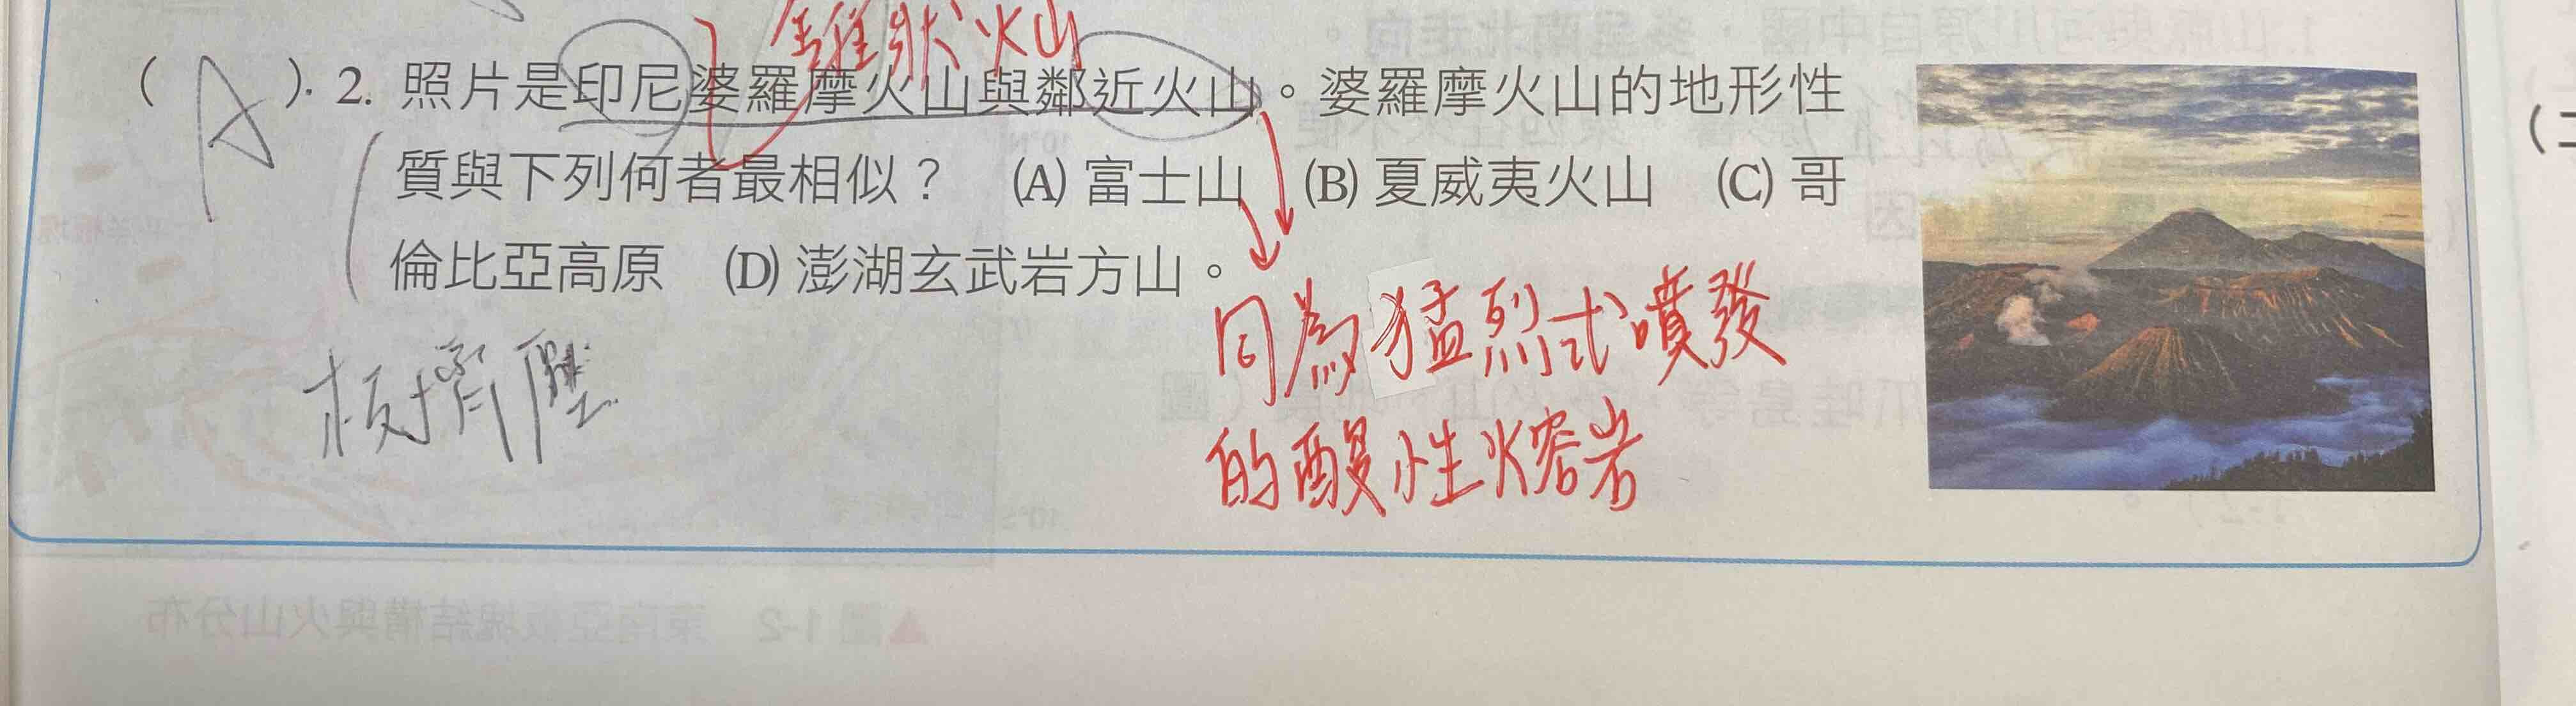 錐狀火山
( A ). 2. 照片是印尼婆羅摩火山與鄰近火山。婆羅摩火山的地形性
質與下列何者最相似？ (A) 富士山 (B) 夏威夷火山 (C) 哥
倫比亞高原 (D) 澎湖玄武岩方山。
同為猛烈式噴發
的酸性熔岩
板擠壓
▲圖 1-2 東南亞板塊結構與火山分布